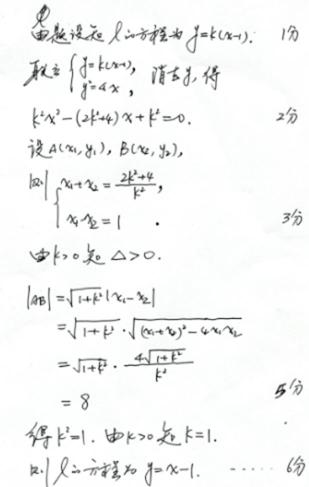 由题设知 l的方程为 y=k(x-1). 1分
联立 { y=k(x-1),
y²=4x , 消去y, 得
k²x²-(2k²+4)x+k²=0. 2分
设A(x₁,y₁), B(x₂,y₂),
则 { x₁+x₂=(2k²+4)/k²,
x₁x₂=1 . 3分
由k>0知 △>0.
|AB|=√(1+k²)|x₁-x₂|
=√(1+k²)·√((x₁+x₂)²-4x₁x₂)
=√(1+k²)·4√(1+k²)/k²
=8 5分
得k²=1. 由k>0知k=1.
则l的方程为y=x-1. ······ 6分